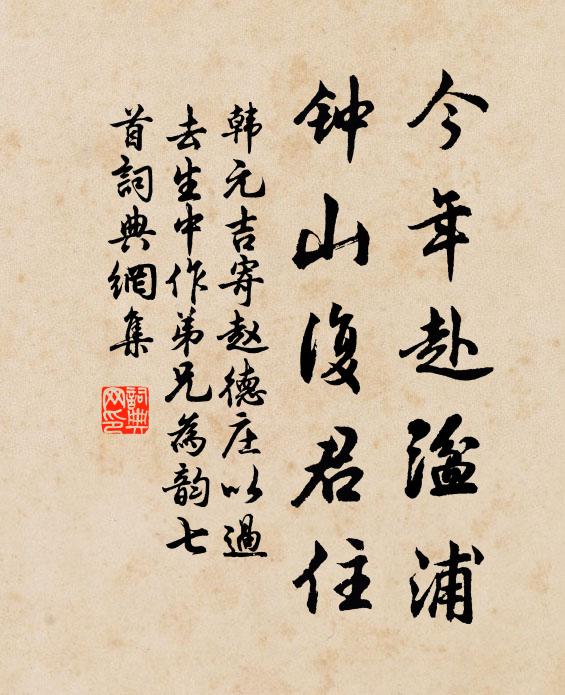 今年赴湓浦
钟山復君住
韩元吉寄赵德庄以過
去生中作弟兄為韵七
首詞典網集
詞典
网印